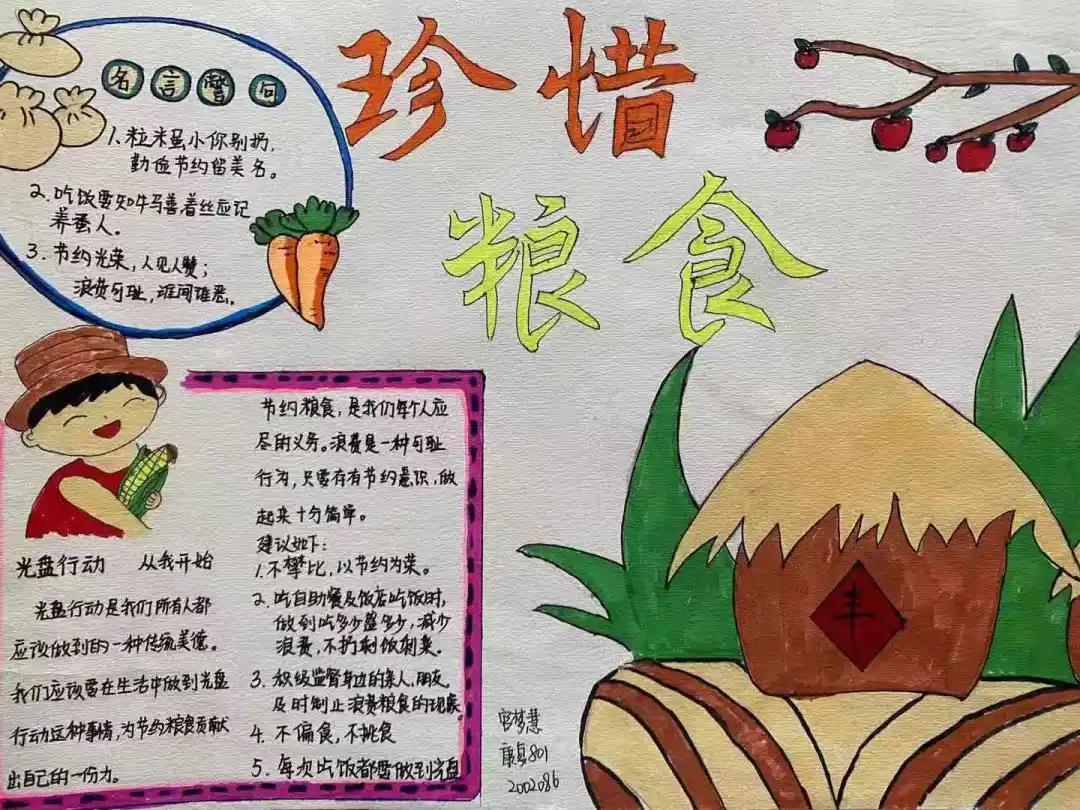 珍惜
粮食
名言警句
1.粒米虽小你别扔,
勤俭节约留美名。
2.吃饭要知牛马善,着丝应记
养蚕人。
3.节约光荣,人见人赞;
浪费可耻,谁闻谁恶。
光盘行动 从我开始
光盘行动是我们所有人都
应该做到的一种传统美德。
我们应该要在生活中做到光盘
行动这种事情,为节约粮食贡献
出自己的一份力。
节约粮食,是我们每个人应
尽的义务。浪费是一种可耻
行为,只要存有节约意识,做
起来十分简单。
建议如下:
1.不攀比,以节约为荣。
2.吃自助餐及饭店吃饭时,
做到吃多少盛多少,减少
浪费,不扔剩饭剩菜。
3.积极监督身边的亲人,朋友
及时制止浪费粮食的现象。
4.不偏食,不挑食
5.每次吃饭都要做到光盘
丰
梦慧
康复801
2002086